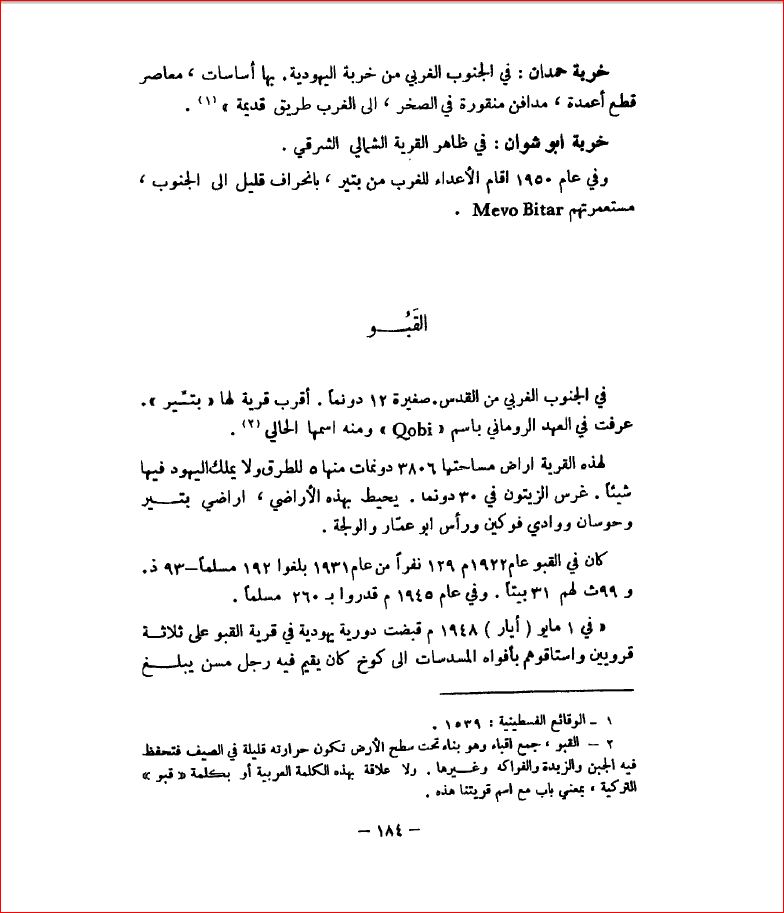 خربة حمدان : في الجنوب الغربي من خربة اليهودية. بها أساسات ، معاصر
قطع أعمدة ، مدافن منقورة في الصخر ، الى الغرب طريق قديمة » (١) .
خربة ابو شوان : في ظاهر القرية الشمالي الشرقي .
وفي عام ١٩٥٠ اقام الأعداء للغرب من بتير ، بانحراف قليل الى الجنوب ،
مستعمرتهم Mevo Bitar .
القَبُـــو
في الجنوب الغربي من القدس. صغيرة ١٢ دونماً . أقرب قرية لها « بتّير ».
عرفت في العهد الروماني باسم « Qobi » ومنه اسمها الحالي (٢) .
لهذه القرية اراض مساحتها ٣٨٠٦ دونمات منها ٥ للطرق ولا يملك اليهود فيها
شيئاً . غرس الزيتون في ٣٠ دونما . يحيط بهذه الأراضي ، اراضي بتـــير
وحوسان ووادي فوكين ورأس ابو عمّار والولجة .
كان في القبو عام ١٩٢٢م ١٢٩ نفراً من عام ١٩٣١ بلغوا ١٩٢ مسلماً–٩٣ ذ.
و ٩٩ث لهم ٣١ بيتاً . وفي عام ١٩٤٥ م قدروا بـ ٢٦٠ مسلماً .
« في ١ مايو ( أيار ) ١٩٤٨ م قبضت دورية يهودية في قرية القبو على ثلاثة
قرويين واستاقوهم بأفواه المسدسات الى كوخ كان يقيم فيه رجل مسن يبلـــغ
١ ـ الوقائع الفلسطينية : ١٥٣٩ .
٢ – القبو ، جمع اقباء وهو بناء تحت سطح الأرض تكون حرارته قليلة في الصيف فتحفظ
فيه الجبن والزبدة والفواكه وغـــيرها . ولا علاقة بهذه الكلمة العربية أو بكلمة « قبو »
التركية ، بمعني باب مع اسم قريتنا هذه .
– ١٨٤ –